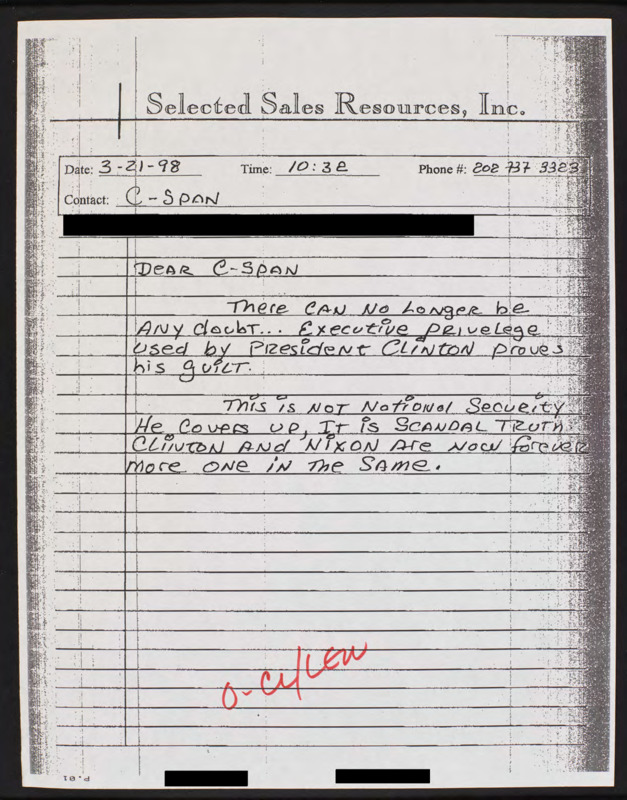 Selected Sales Resources, Inc.
Date: 3-21-98 Time: 10:32 Phone #: 202 737 3323
Contact: C-SPAN
DEAR C-SPAN
There CAN No Longer be
ANY doubt... Executive privelege
used by PResideNT CLINTON proves
his guilT.
This is NOT National Security
He Covers up, IT is SCANDAL TRUTH.
CLINTON AND NIXON Are Now forever
more ONE iN The SAMe.
P.01